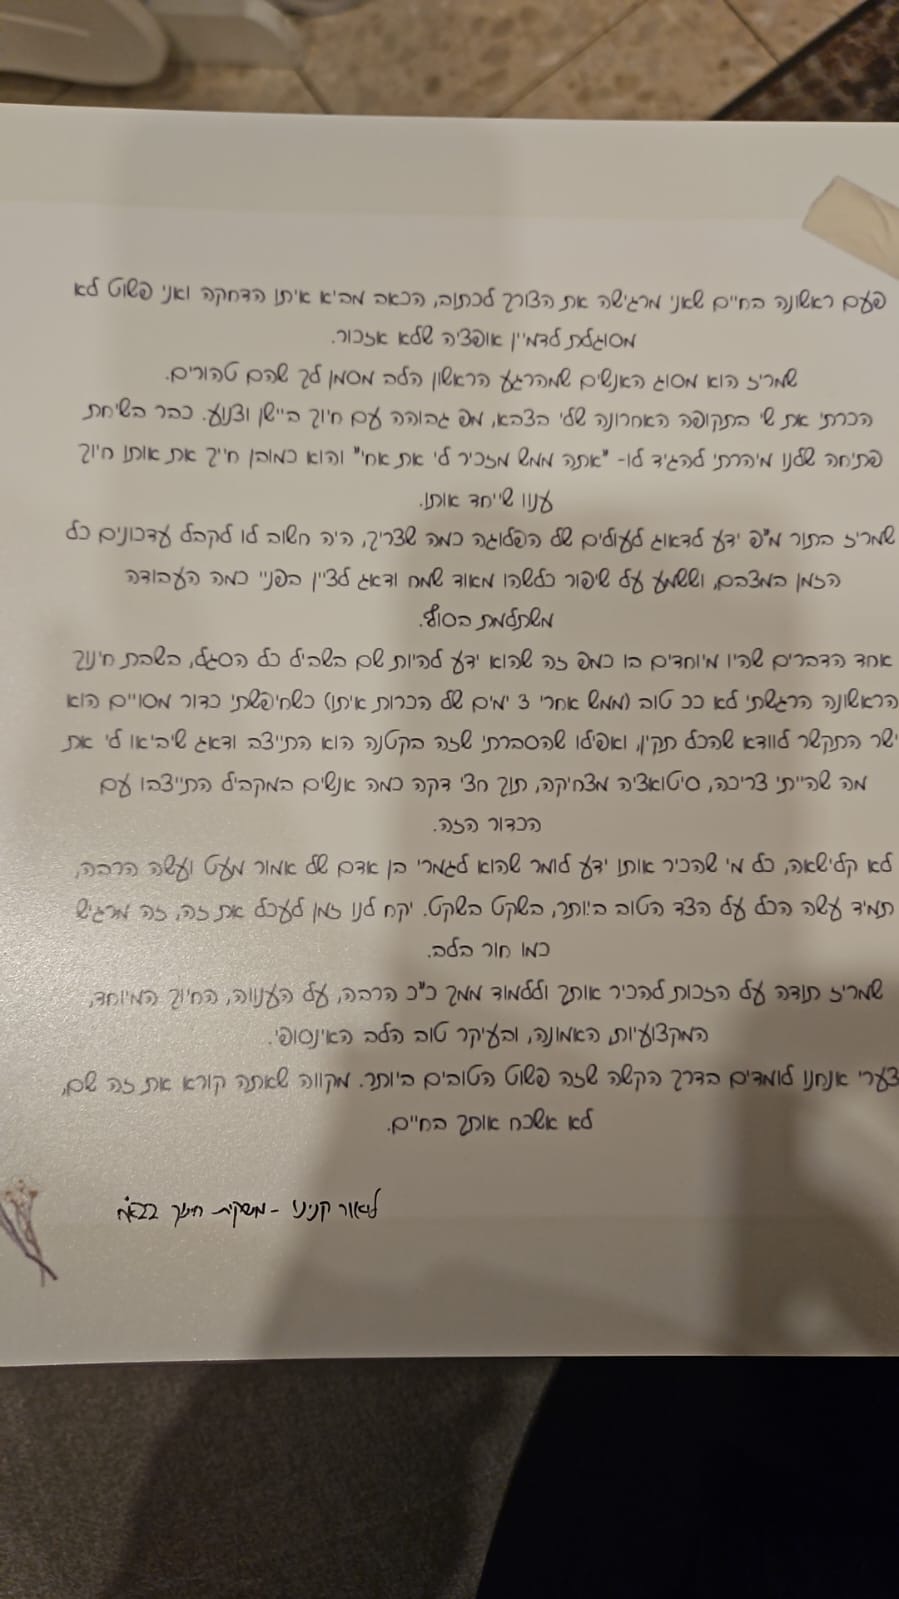 פעם ראשונה בחיים שאני מרגישה את הצורך לכתוב, הכאב מביא איתו הדחקה ואני פשוט לא
מסוגלת לדמיין אופציה שלא אזכור.
שמריז הוא מסוג האנשים שמהרגע הראשון הלב מסמן לך שהם טהורים.
הכרתי את שי בתקופה האחרונה שלי בצבא, מפ גבוהה עם חיוך ביישן וצנוע. כבר בשיחת
פתיחה שלנו מיהרתי להגיד לו- "אתה ממש מזכיר לי את אחי" והוא כמובן חייך את אותו חיוך
ענוו שייחד אותו.
שמריז בתור מ"פ ידע לדאוג לעולים של הפלוגה כמה שצריך, היה חשוב לו לקבל עדכונים כל
הזמן במצבם, וששמע על שיפור כלשהו מאוד שמח ודאג לציין בפניי כמה העבודה
משתלמת בסוף.
אחד הדברים שהיו מיוחדים בו כמפ זה שהוא ידע להיות שם בשביל כל הסגל, בשבת חינוך
הראשונה הרגשתי לא ככ טוב (ממש אחרי 3 ימים של הכרות איתו) כשחיפשתי כדור מסויים הוא
ישר התקשר לוודא שהכל תקין, ואפילו שהסברתי שזה בקטנה הוא התייצב ודאג שיביאו לי את
מה שהייתי צריכה, סיטואציה מצחיקה, תוך חצי דקה כמה אנשים במקביל התייצבו עם
הכדור הזה.
לא קלישאה, כל מי שהכיר אותו ידע לומר שהוא לגמרי בן אדם של אמור מעט ועשה הרבה,
תמיד עשה הכל על הצד הטוב ביותר, בשקט בשקט. יקח לנו זמן לעכל את זה, זה מרגיש
כמו חור בלב.
שמריז תודה על הזכות להכיר אותך וללמוד ממך כ"כ הרבה, על הענווה, החיוך המיוחד,
המקצועיות, האמונה, ובעיקר טוב הלב האינסופי.
צערי אנחנו לומדים בדרך הקשה שזה פשוט הטובים ביותר. מקווה שאתה קורא את זה שם,
לא אשכח אותך בחיים.
ליאור קנינו - משקית חינוך